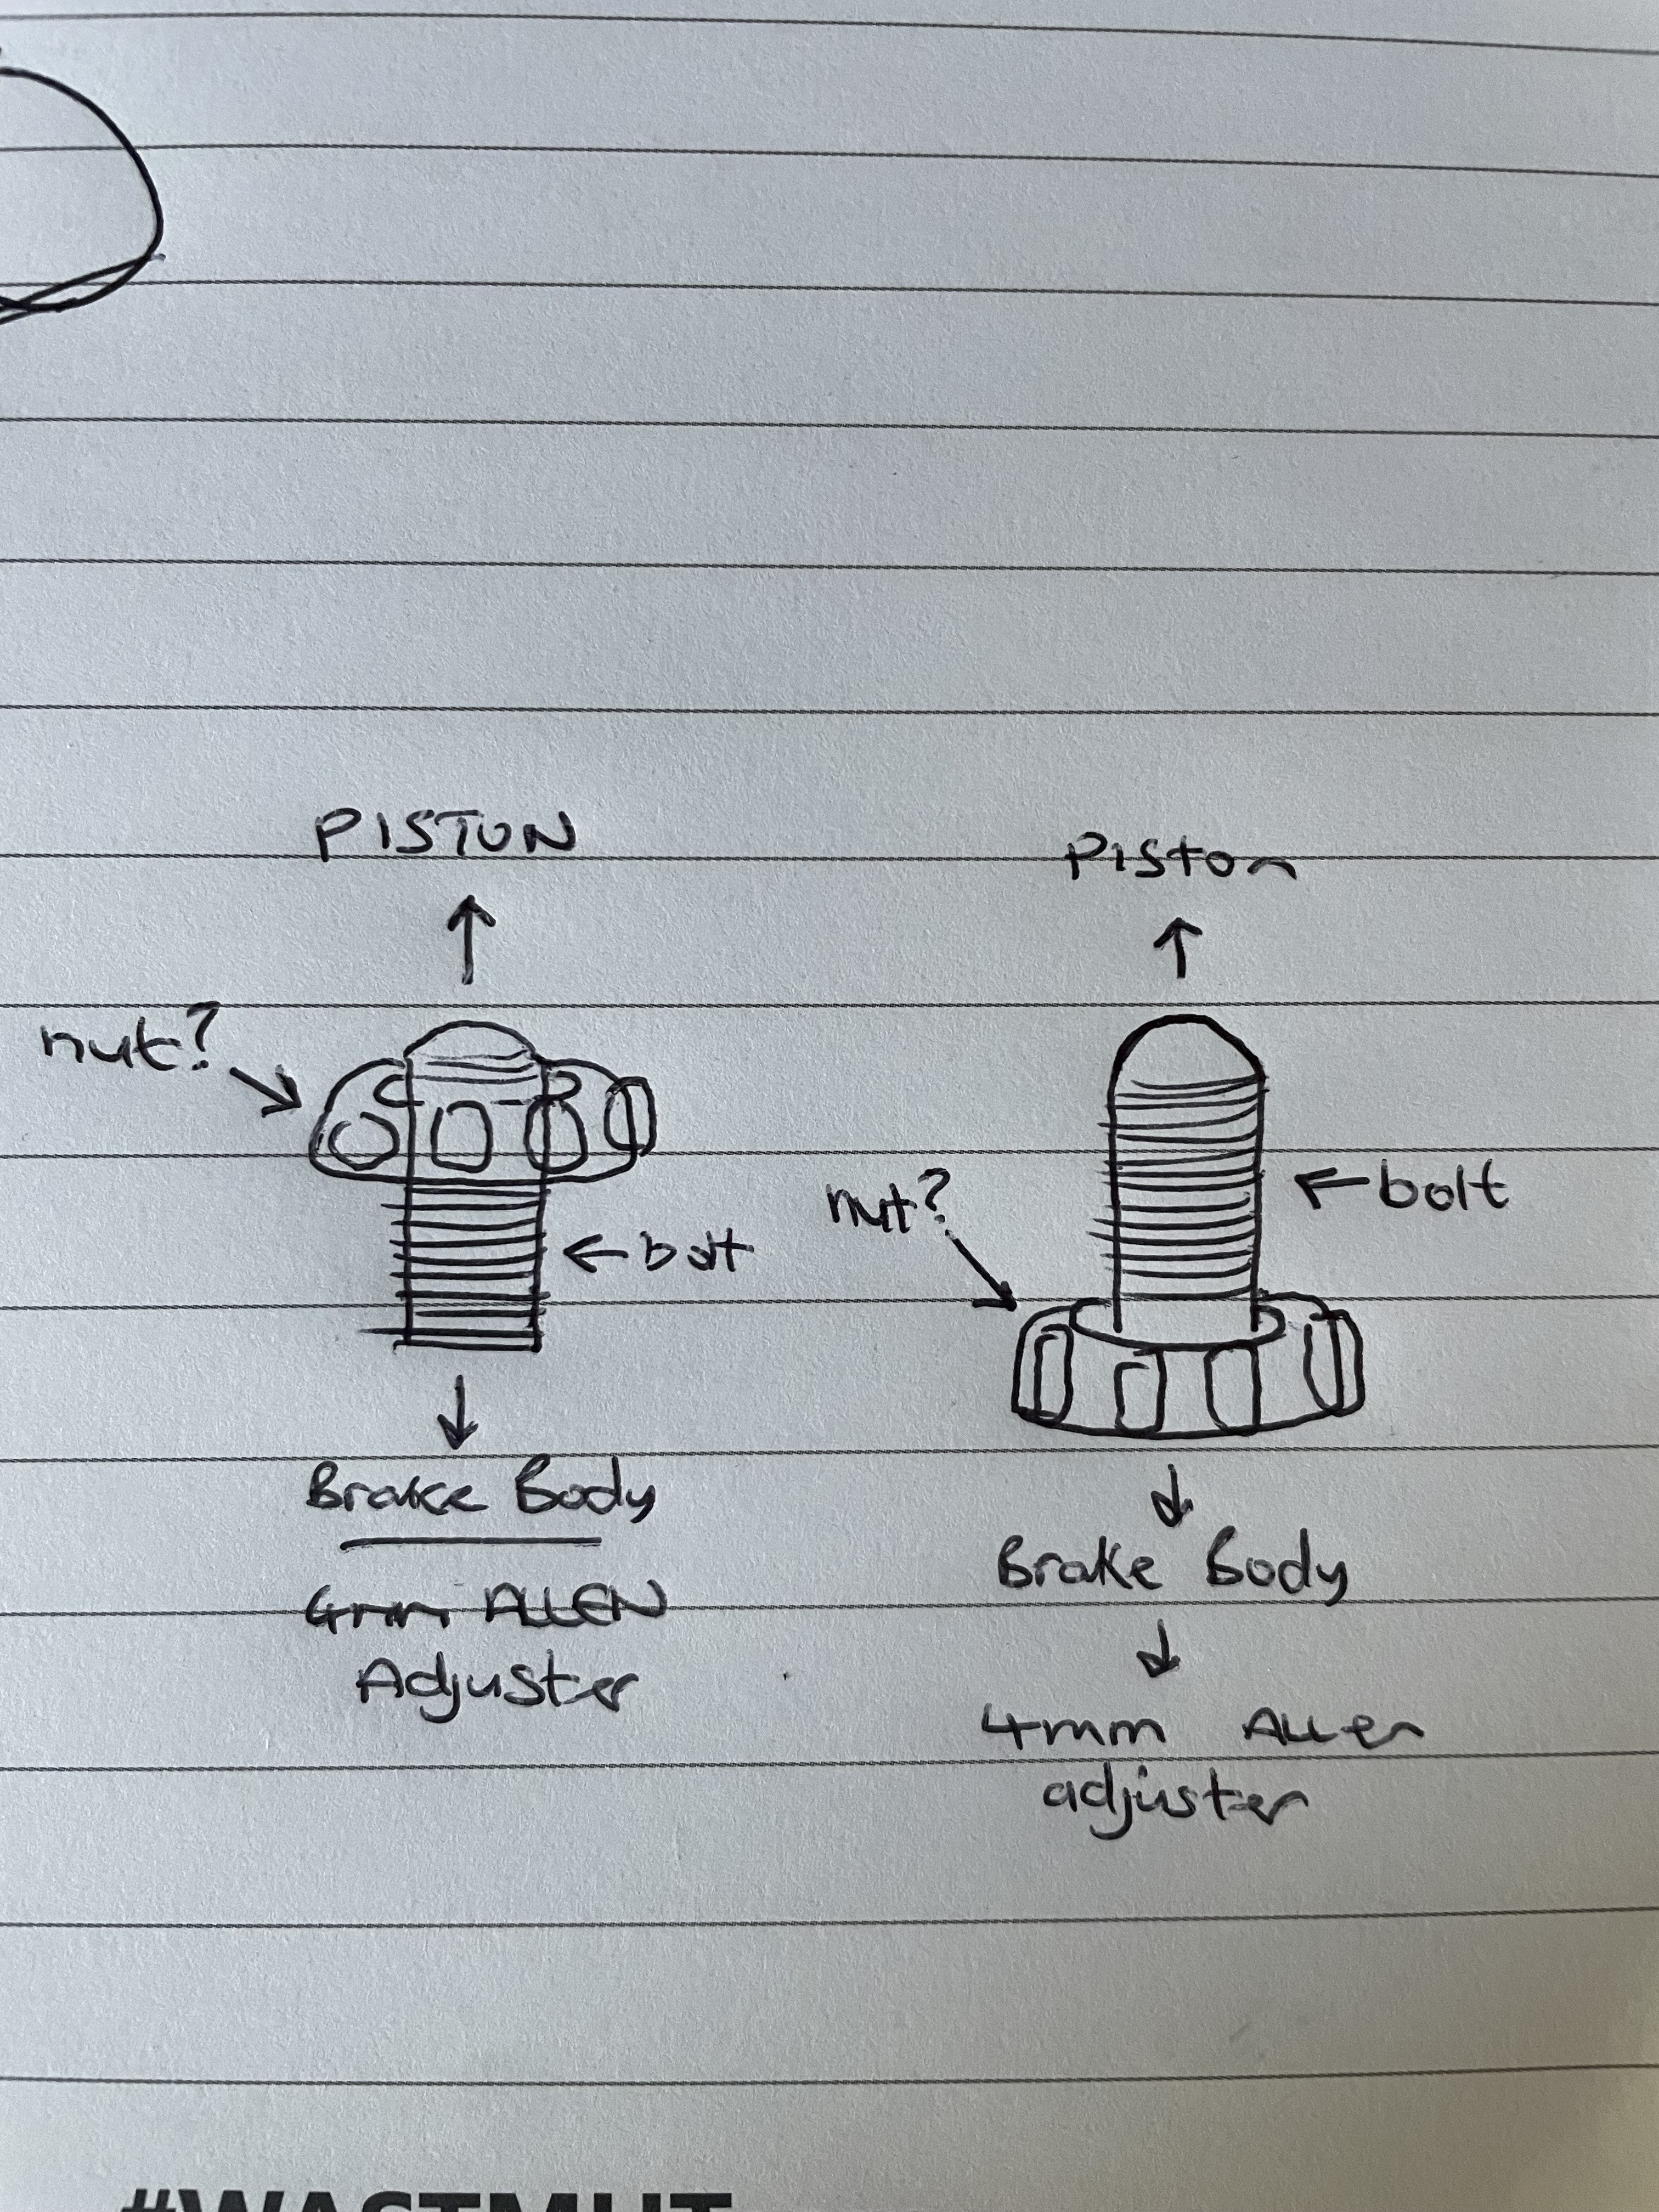 PISTON
nut?
bolt
Brake Body
4mm ALLEN
Adjuster
Piston
nut?
bolt
Brake Body
4mm Allen
adjuster